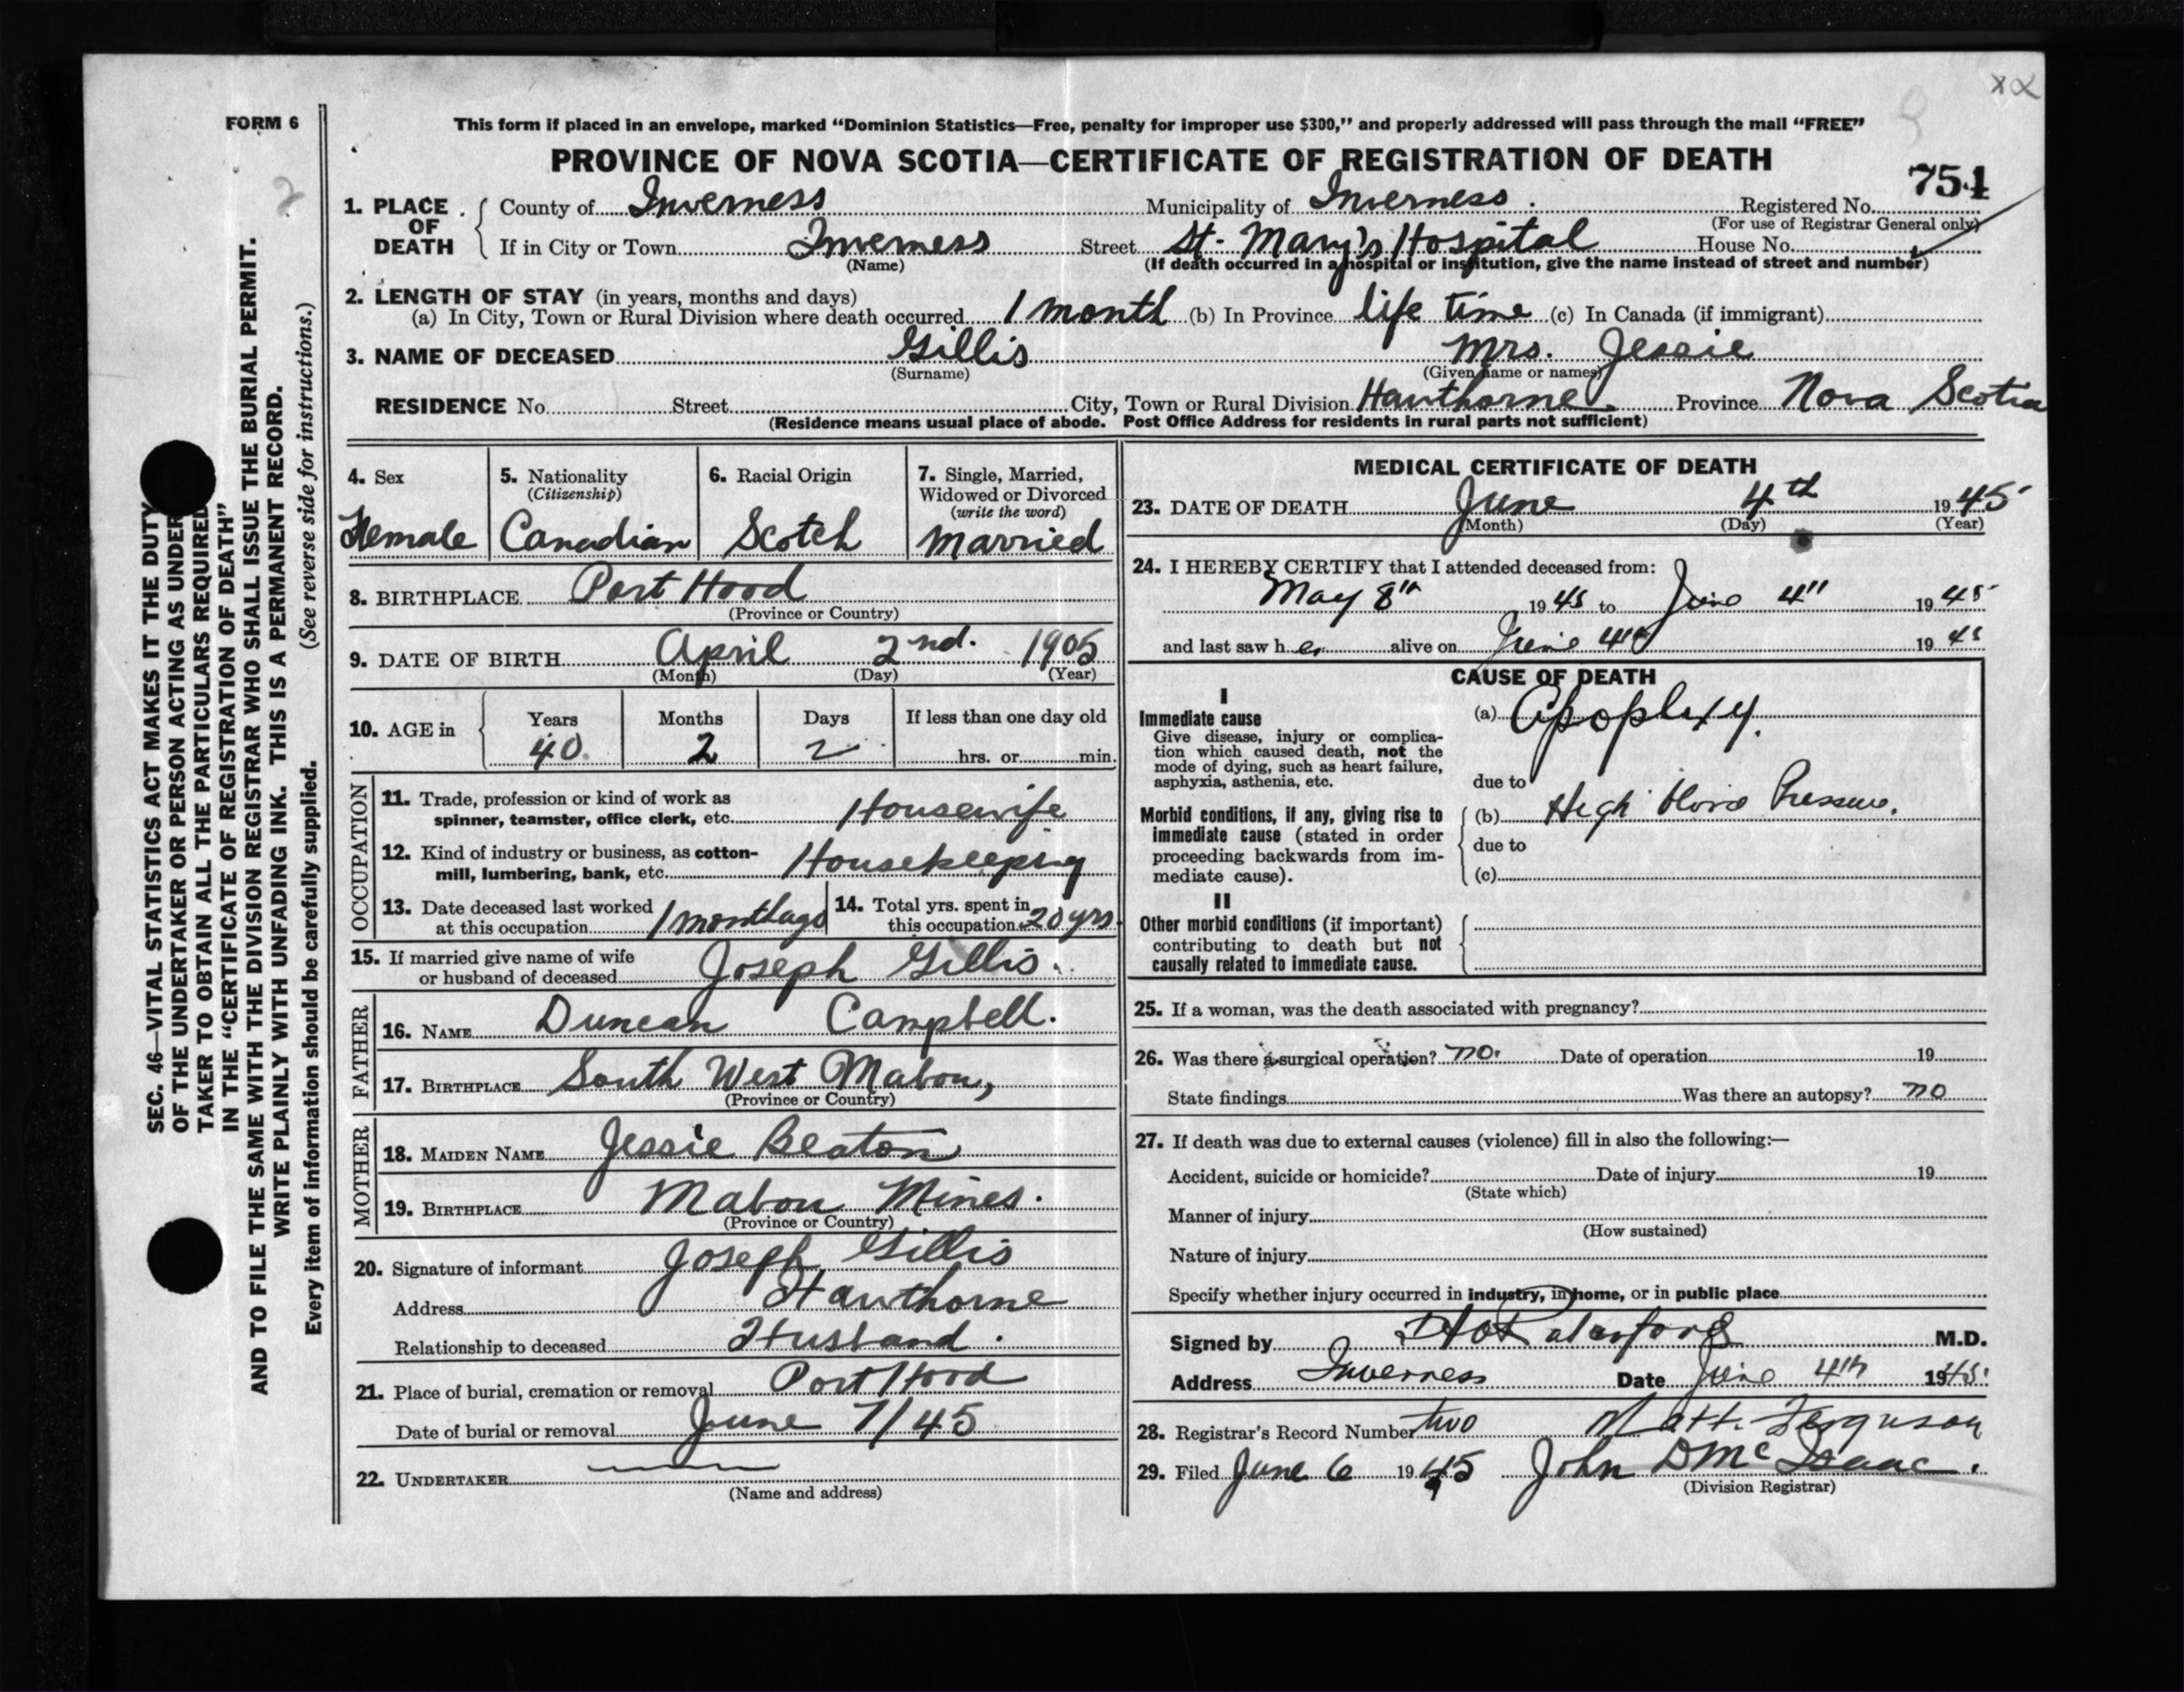 FORM 6
This form if placed in an envelope, marked “Dominion Statistics—Free, penalty for improper use $300,” and properly addressed will pass through the mail “FREE”
PROVINCE OF NOVA SCOTIA—CERTIFICATE OF REGISTRATION OF DEATH
754
1. PLACE OF DEATH County of Inverness Municipality of Inverness. Registered No.
(For use of Registrar General only)
If in City or Town Inverness Street St. Mary's Hospital House No.
(Name) (If death occurred in a hospital or institution, give the name instead of street and number)
2. LENGTH OF STAY (in years, months and days)
(a) In City, Town or Rural Division where death occurred 1 month (b) In Province life time (c) In Canada (if immigrant)
3. NAME OF DECEASED Gillis Mrs. Jessie
(Surname) (Given name or names)
RESIDENCE No. Street City, Town or Rural Division Hawthorne. Province Nova Scotia
(Residence means usual place of abode. Post Office Address for residents in rural parts not sufficient)
4. Sex 5. Nationality 6. Racial Origin 7. Single, Married,
(Citizenship) Widowed or Divorced
(write the word)
Female Canadian Scotch Married
8. BIRTHPLACE Port Hood
(Province or Country)
9. DATE OF BIRTH April 2nd. 1905
(Month) (Day) (Year)
10. AGE in Years Months Days If less than one day old
40. 2 2 hrs. or min.
OCCUPATION
11. Trade, profession or kind of work as
spinner, teamster, office clerk, etc. Housewife
12. Kind of industry or business, as cotton-
mill, lumbering, bank, etc. Housekeeping
13. Date deceased last worked 14. Total yrs. spent in
at this occupation 1 month ago this occupation 20 yrs.
15. If married give name of wife
or husband of deceased Joseph Gillis.
FATHER
16. NAME Duncan Campbell.
17. BIRTHPLACE South West Mabou,
(Province or Country)
MOTHER
18. MAIDEN NAME Jessie Beaton
19. BIRTHPLACE Mabou Mines.
(Province or Country)
20. Signature of informant Joseph Gillis
Address Hawthorne
Relationship to deceased Husband.
21. Place of burial, cremation or removal Port Hood
Date of burial or removal June 7/45
22. UNDERTAKER
(Name and address)
MEDICAL CERTIFICATE OF DEATH
23. DATE OF DEATH June 4th 1945
(Month) (Day) (Year)
24. I HEREBY CERTIFY that I attended deceased from:
May 8th 1945 to June 4" 1945
and last saw her alive on June 4th 1945
CAUSE OF DEATH
I
Immediate cause (a) Apoplexy.
Give disease, injury or complica-
tion which caused death, not the
mode of dying, such as heart failure,
asphyxia, asthenia, etc. due to
Morbid conditions, if any, giving rise to (b) High Blood Pressure.
immediate cause (stated in order
proceeding backwards from im- due to
mediate cause). (c)
II
Other morbid conditions (if important)
contributing to death but not
causally related to immediate cause.
25. If a woman, was the death associated with pregnancy?
26. Was there a surgical operation? no. Date of operation 19
State findings Was there an autopsy? no
27. If death was due to external causes (violence) fill in also the following:—
Accident, suicide or homicide? Date of injury 19
(State which)
Manner of injury
(How sustained)
Nature of injury
Specify whether injury occurred in industry, in home, or in public place
Signed by M.D.
Address Inverness Date June 4th 1945
28. Registrar's Record Number two Matt. Ferguson
29. Filed June 6 1945 John D McIsaac.
(Division Registrar)
SEC. 46—VITAL STATISTICS ACT MAKES IT THE DUTY
OF THE UNDERTAKER OR PERSON ACTING AS UNDER
TAKER TO OBTAIN ALL THE PARTICULARS REQUIRED
IN THE “CERTIFICATE OF REGISTRATION OF DEATH”
AND TO FILE THE SAME WITH THE DIVISION REGISTRAR WHO SHALL ISSUE THE BURIAL PERMIT.
WRITE PLAINLY WITH UNFADING INK. THIS IS A PERMANENT RECORD.
Every item of information should be carefully supplied. (See reverse side for instructions.)